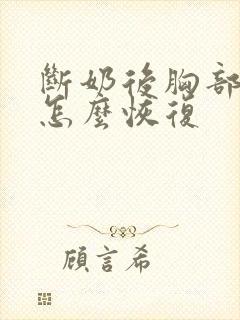 斷奶後胸部
怎麼恢復
顧言希